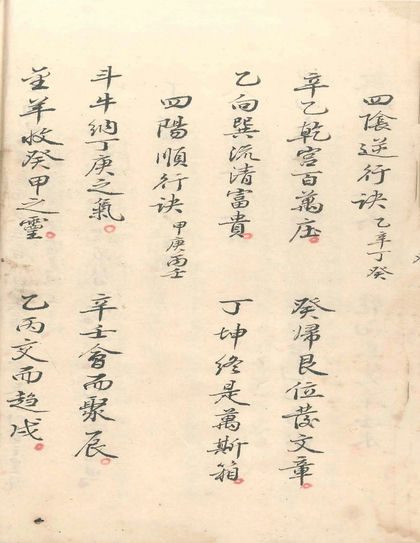 四陰逆行訣 乙辛丁癸
辛乙乾宮百萬庄。 癸歸艮位發文章。
乙向巽流清富貴。 丁坤終是萬斯箱。
四陽順行訣 甲庚丙壬
斗牛納丁庚之氣。 辛壬會而聚辰。
金羊收癸甲之靈。 乙丙交而趋戌。